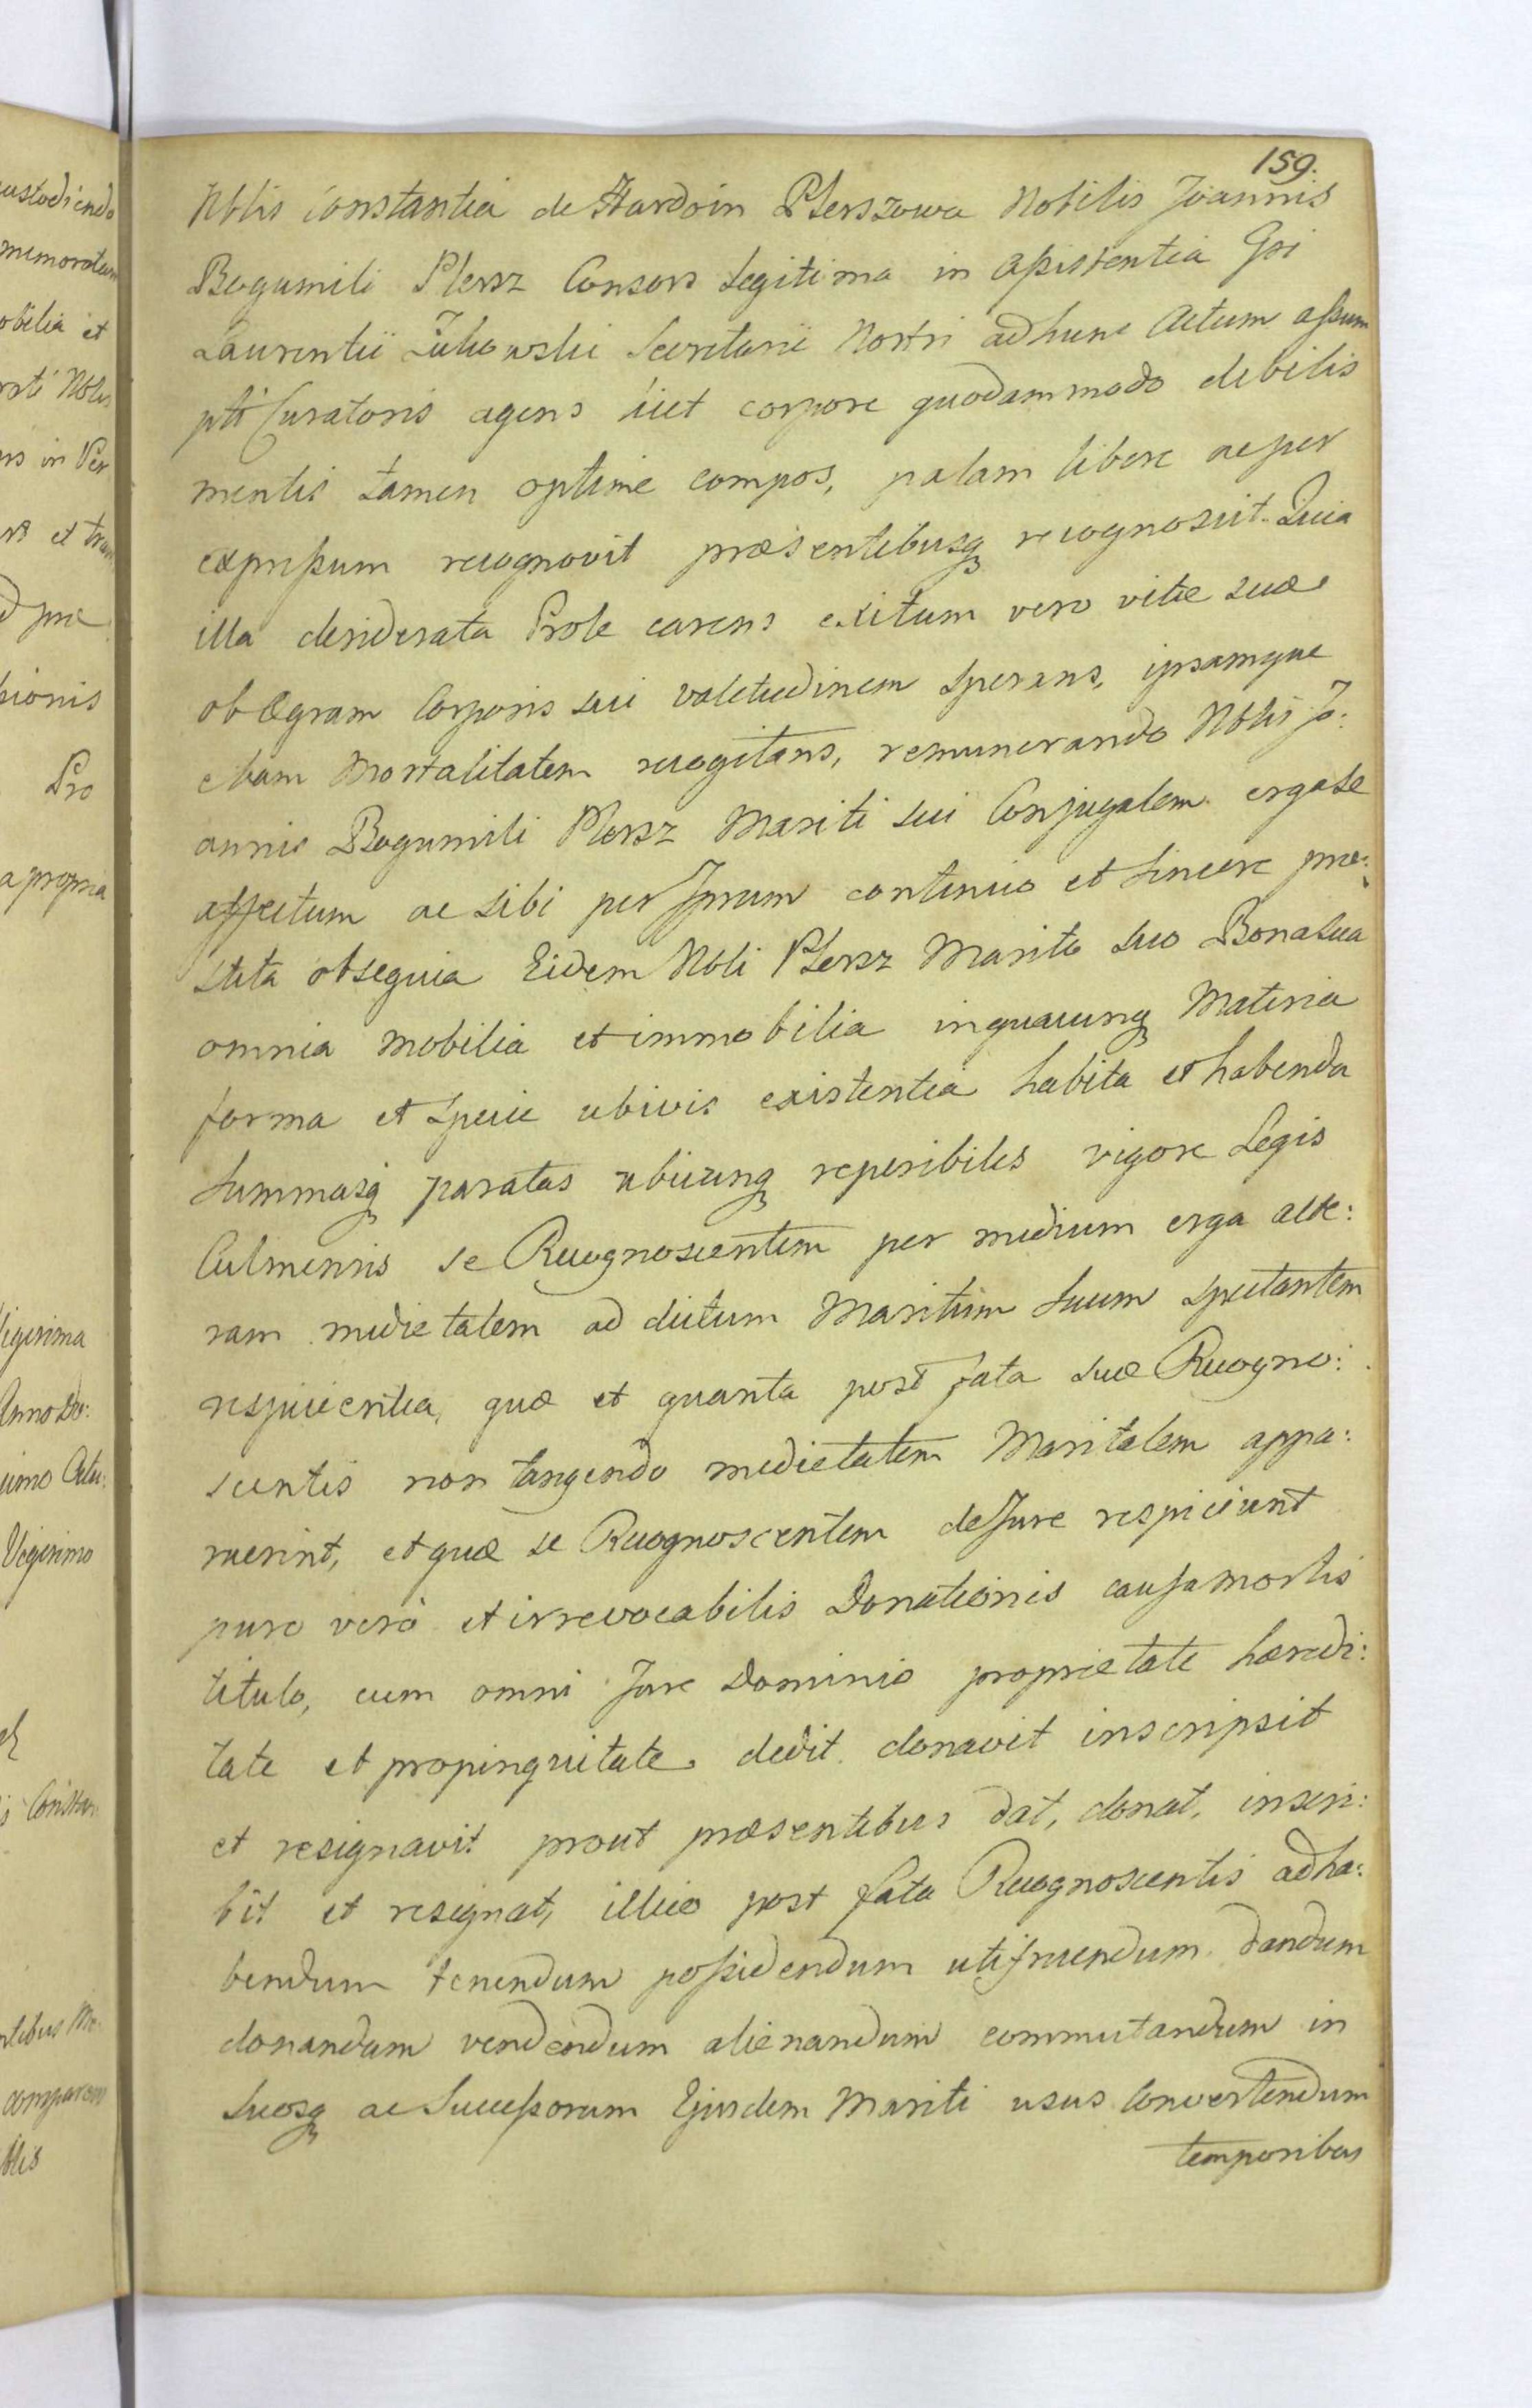 159.
Nblis Constantia de Hardoin Plerszowa Nobilis Joannis
Bogumili Plersz Consors Legitima in aßistentia Gsi
Laurentii Żukowski Secretarii Nostri ad hunc Actum aßum
pti Curatoris agens licet corpore quodammodo debilis
mentis tamen optime compos, palam libere ac per
expreßum recognovit præsentibusq recognoscit. Quia
illa desiderata Prole carens exitum vero vitæ suæ
ob ægram Corporis sui valetudinem sperans, ipsamque
etiam Mortalitatem recogitans, remunerando Nblis Jo:
annis Bogumili Plersz Mariti sui Conjugalem erga se
affectum ac sibi per Ipsum continuo et sincere præ:
stita obsequia Eidem Nbli Plersz Marito suo Bona sua
omnia mobilia et immobilia in quacunq Materia
forma et specie ubivis existentia habita et habenda
Summasq paratas ubicunq reperibiles vigore Legis
Culmensis se Recognoscentem per medium erga alte:
ram medietatem ad dictum Maritum suum spectantem
respicientia, quæ et quanta post fata suæ Recogno:
scentis non tangendo medietatem Maritalem appa:
ruerint, et quæ se Recognoscentem de Jure respiciunt
puro vero et irrevocabilis Donationis causa mortis
titulo, cum omni Jure Dominio proprietate hæredi:
tate et propinquitate dedit donavit inscripsit
et resignavit prout præsentibus dat, donat, inscri:
bit et resignat, illico post fata Recognoscentis ad ha:
bendum tenendum poßidendum utifruendum dandum
donandum vendendum alienandum commutandum in
Suosq ac Succeßorum Ejusdem Mariti usus Convertendum
temporibus
ustodiendo
memoratum
obilia et
Nblis
ns in Per
et tran
d præ
ßionis
Pro
a propria
igesima
Anno Do:
simo Octu:
Vigesimo
Constan
ntibus Mo
comparem
blis